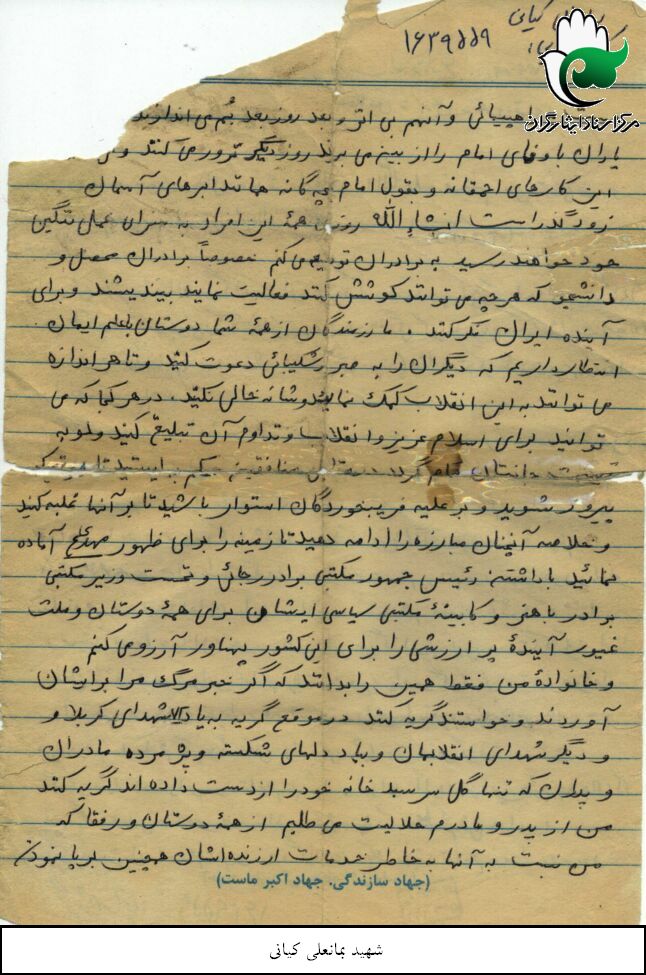 کیانی
۱۶۳۹۵۵۹
مرکز اسناد ایثارگران
راهپیمائی و آنهم بی اثر و بعد روز بعد بُم می اندازند
یاران باوفای امام را از بین می برند روز دیگر ترور می کنند و
این کارهای احمقانه و بقول امام بچه گانه همانند ابرهای آسمان
زودگذر است انشاءالله روزی همۀ این افراد به سزای عمل ننگین
خود خواهند رسید به برادران توصیه می کنم خصوصاً برادران محصل و
دانشجو که هر چه می توانند کوشش کنند فعالیت نمایند بیندیشند و برای
آینده ایران فکر کنند . ما رزمندگان از همۀ شما دوستان با علم ایمان
انتظار داریم که دیگران را به صبر شکیبائی دعوت کنید و تا هر اندازه
می توانند به این انقلاب کمک نمایند و شانه خالی نکنید . در هر کجا که می
توانید برای اسلام عزیز و انقلاب و تداوم آن تبلیغ کنید ولو به
قیمت جانتان تمام گردد در مقابل منافقین محکم بایستید تا
پیروز شوید و بر علیه فریبخوردگان استوار باشید تا بر آنها غلبه کنید
و خلاصه آنچنان مبارزه را ادامه دهید تا زمینه را برای ظهور مهدی آماده
نمائید با داشتن رئیس جمهور مکتبی برادر رجائی و نخست وزیر مکتبی
برادر باهنر و کابینۀ مکتبی سیاسی ایشان برای همۀ دوستان و ملت
غیور آیندۀ پر ارزشی را برای این کشور پهناور آرزو می کنم
و خانوادۀ من فقط همین را بدانند که اگر خبر مرگ مرا برایشان
آوردند و خواستند گریه کنند در موقع گریه به یاد شهدای کربلا و
و دیگر شهدای انقلابمان و بیاد دلهای شکسته ویژه مادران
و پدران که تنها گل سر سبد خانه خود را از دست داده اند گریه کنند
من از پدر و مادرم حلالیت می طلبم از همۀ دوستان و رفقا که
من نسبت به آنها به خاطر خدمات ارزنده اشان همچنین بر پا نمودن
(جهاد سازندگی. جهاد اکبر ماست)
شهید بمانعلی کیانی